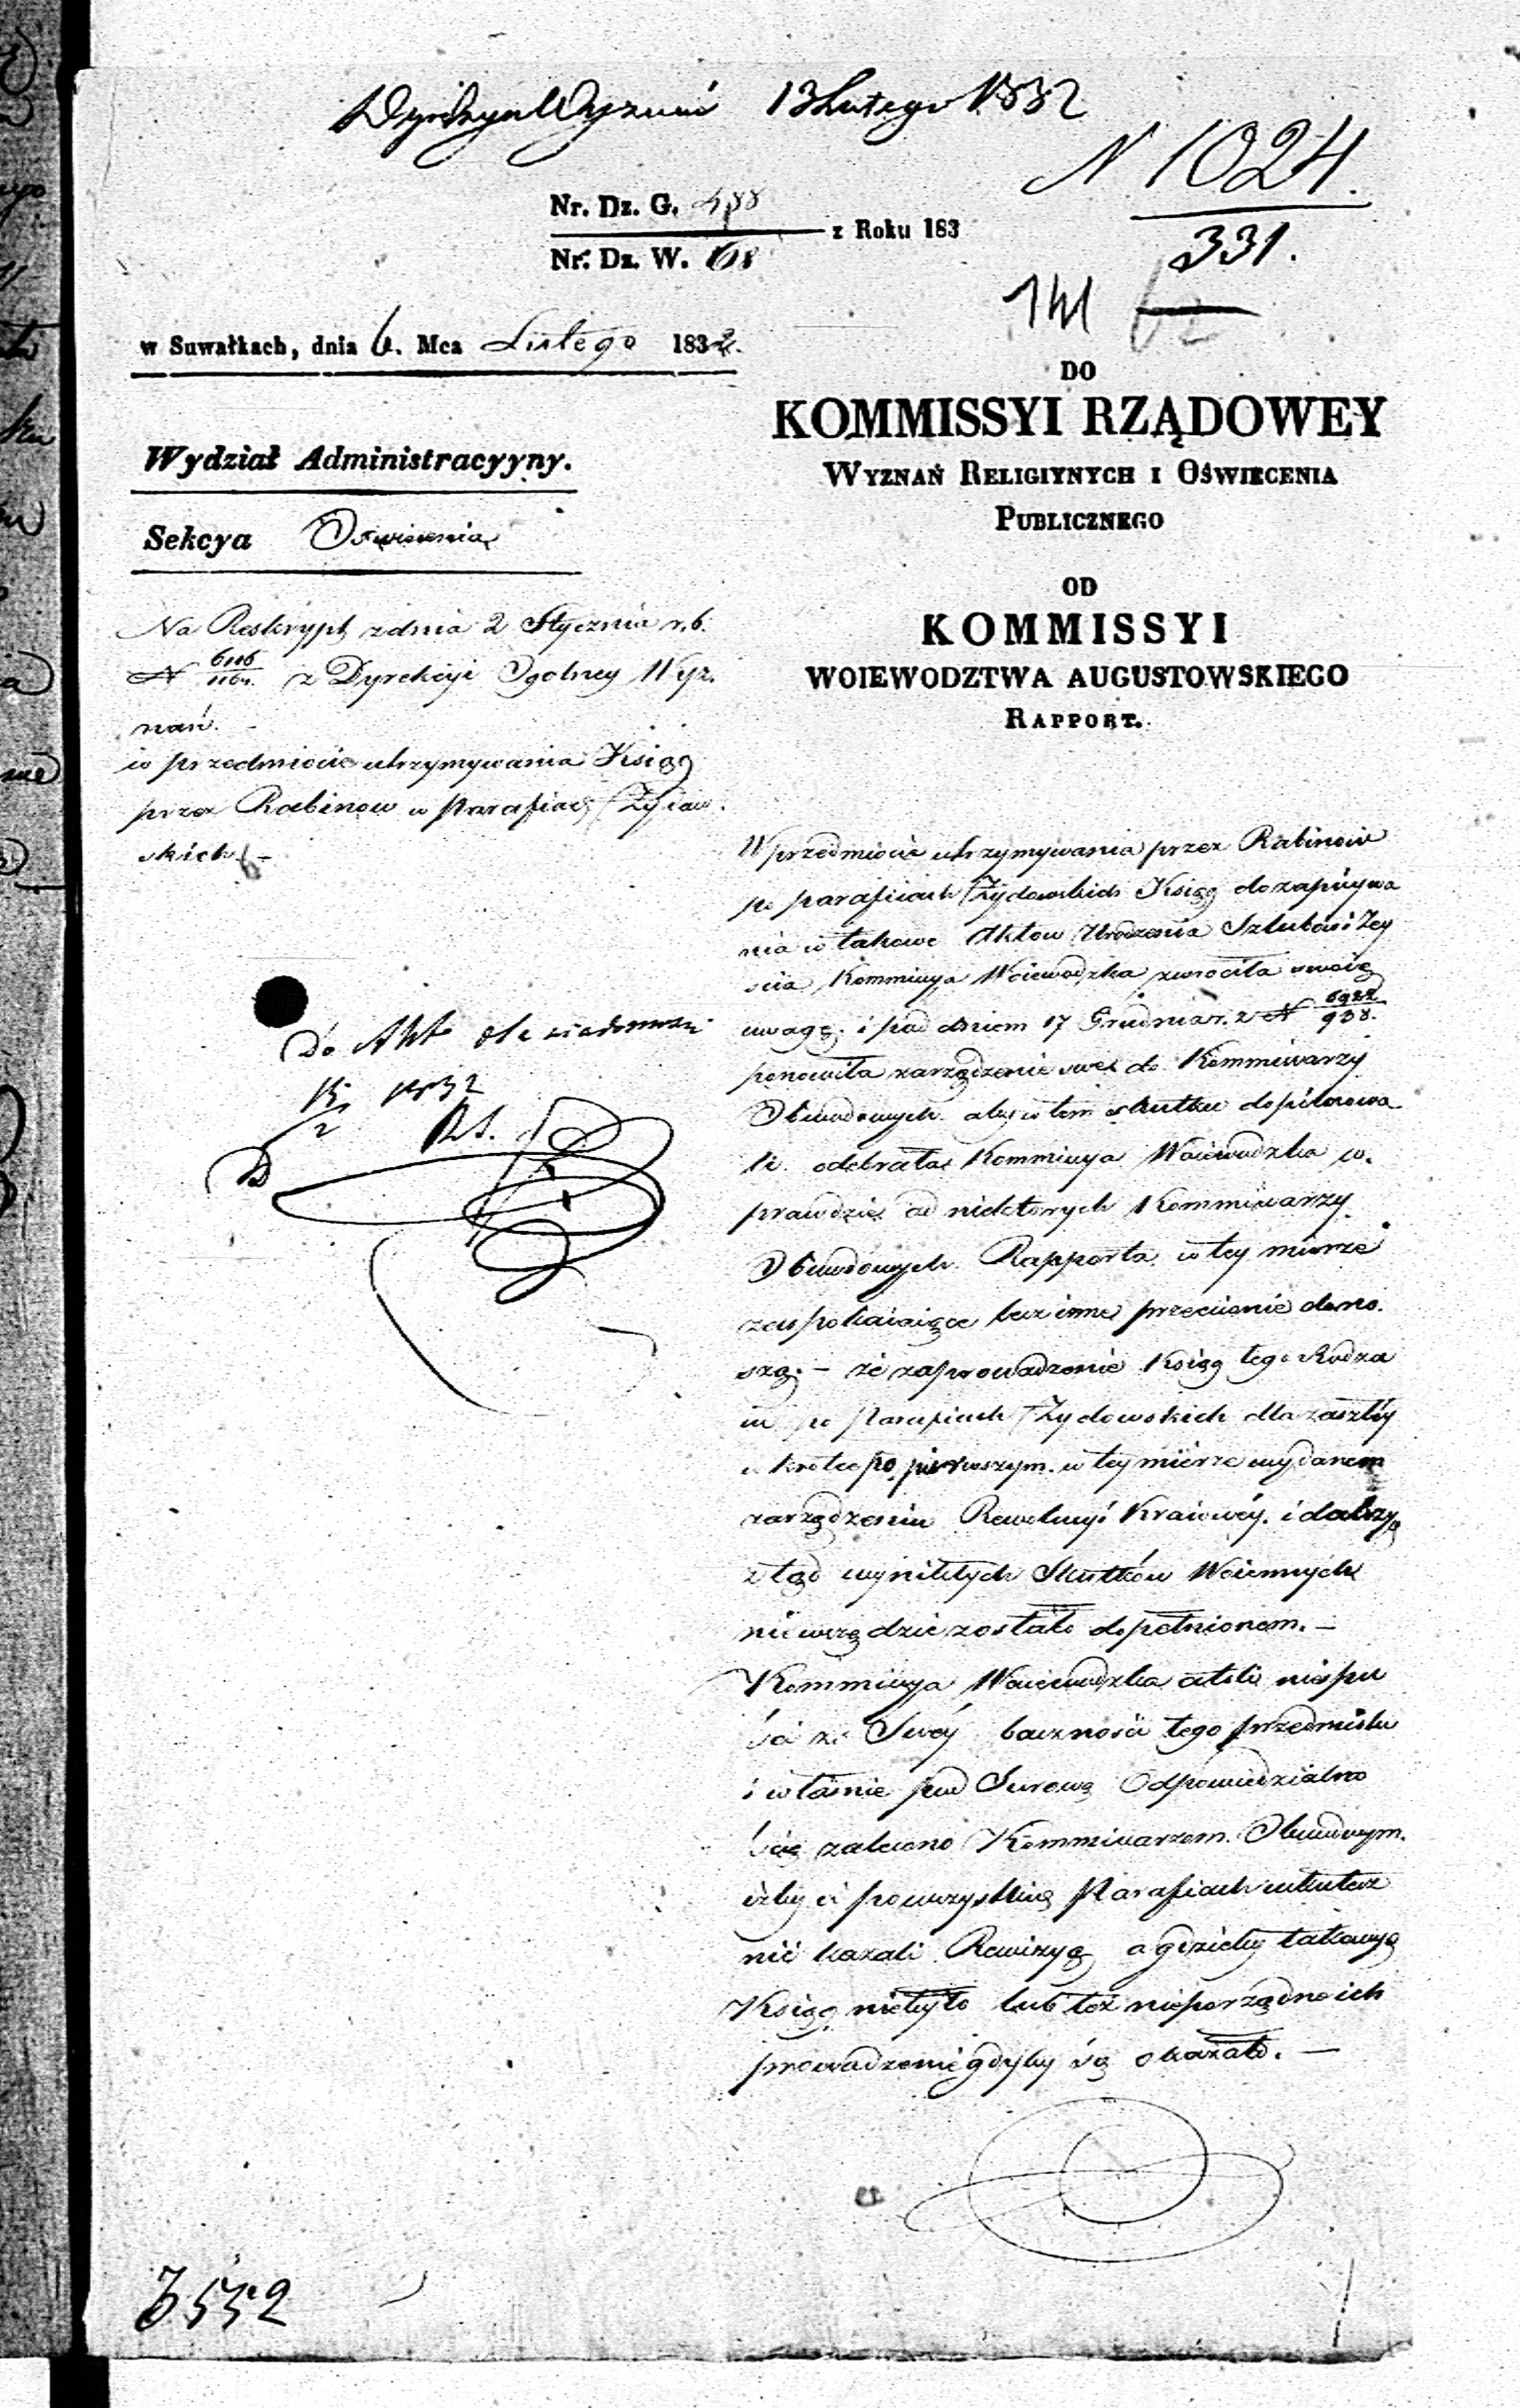 13 Lutego 1832
N 1024.
331.
141
Nr. Dz. G. 488
Nr. Dz. W. 68
z Roku 183
w Suwałkach, dnia 6. Mca Lutego 1832.
Wydział Administracyyny.
Sekcya Oświecenia
Na Reskrypt z dnia 2 Stycznia r. b.
N z Dyrekcyi Ogolney Wyz.
nań.
w przedmiocie utrzymywania Xsiąg
przez Rabinow w Parafiach Żydow.
skich. –
Do Akt dla wiadomości
15/2 1832
DO
KOMMISSYI RZĄDOWEY
WYZNAŃ RELIGIYNYCH I OŚWIECENIA
PUBLICZNEGO
OD
KOMMISSYI
WOIEWODZTWA AUGUSTOWSKIEGO
RAPPORT.
W przedmiocie utrzymywania przez Rabinów
po parafiiach Żydowskich Xsiąg do zapisywa
nia w takowe Aktow Urodzenia Szlubow i Zey
scia Kommissya Woiewodzka zwrociła swoię
uwagę. i pod dniem 17 Grudnia r. z N 6922/938.
ponowiła zarządzenie swe do Kommissarzy
Obwodowych aby w tem skutku dopilnowa
li. odebrała Kommissya Woiewodzka w.
prawdzie od niektorych Kommissarzy
Obwodowych Rapporta w tey mierze
zaspokaiaiące lecz inne przeciwnie dono.
szą. – że zaprowadzenie Xsiąg tego Rodza
iu po Parafiach Żydowskich dla zaszłéy
w krotce po pierwszym w tey mierze wydanem
zarządzeniu Rewolucyi Kraiowéy. i dalszych
z tąd wynikłych Skutków Woiennych
nie wszędzie zostało dopełnionem. –
Kommissya Woiewodzka atoli niespu
ści ze Swéy baczności tego przedmiotu
i właśnie pod Surową Odpowiedzialno
ścią zalecono Kommissarzom Obwodowym.
iżby ci po wszystkich Parafiach uskutecz
nić kazali Rewizyą a gdzieby takowych
Xsiąg niebyło lub też nieporządne ich
prowadzenie gdyby się okazało. –
3552